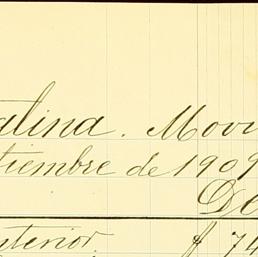 alina. Movi
tiembre de 1909
De
nterior ƒ 74